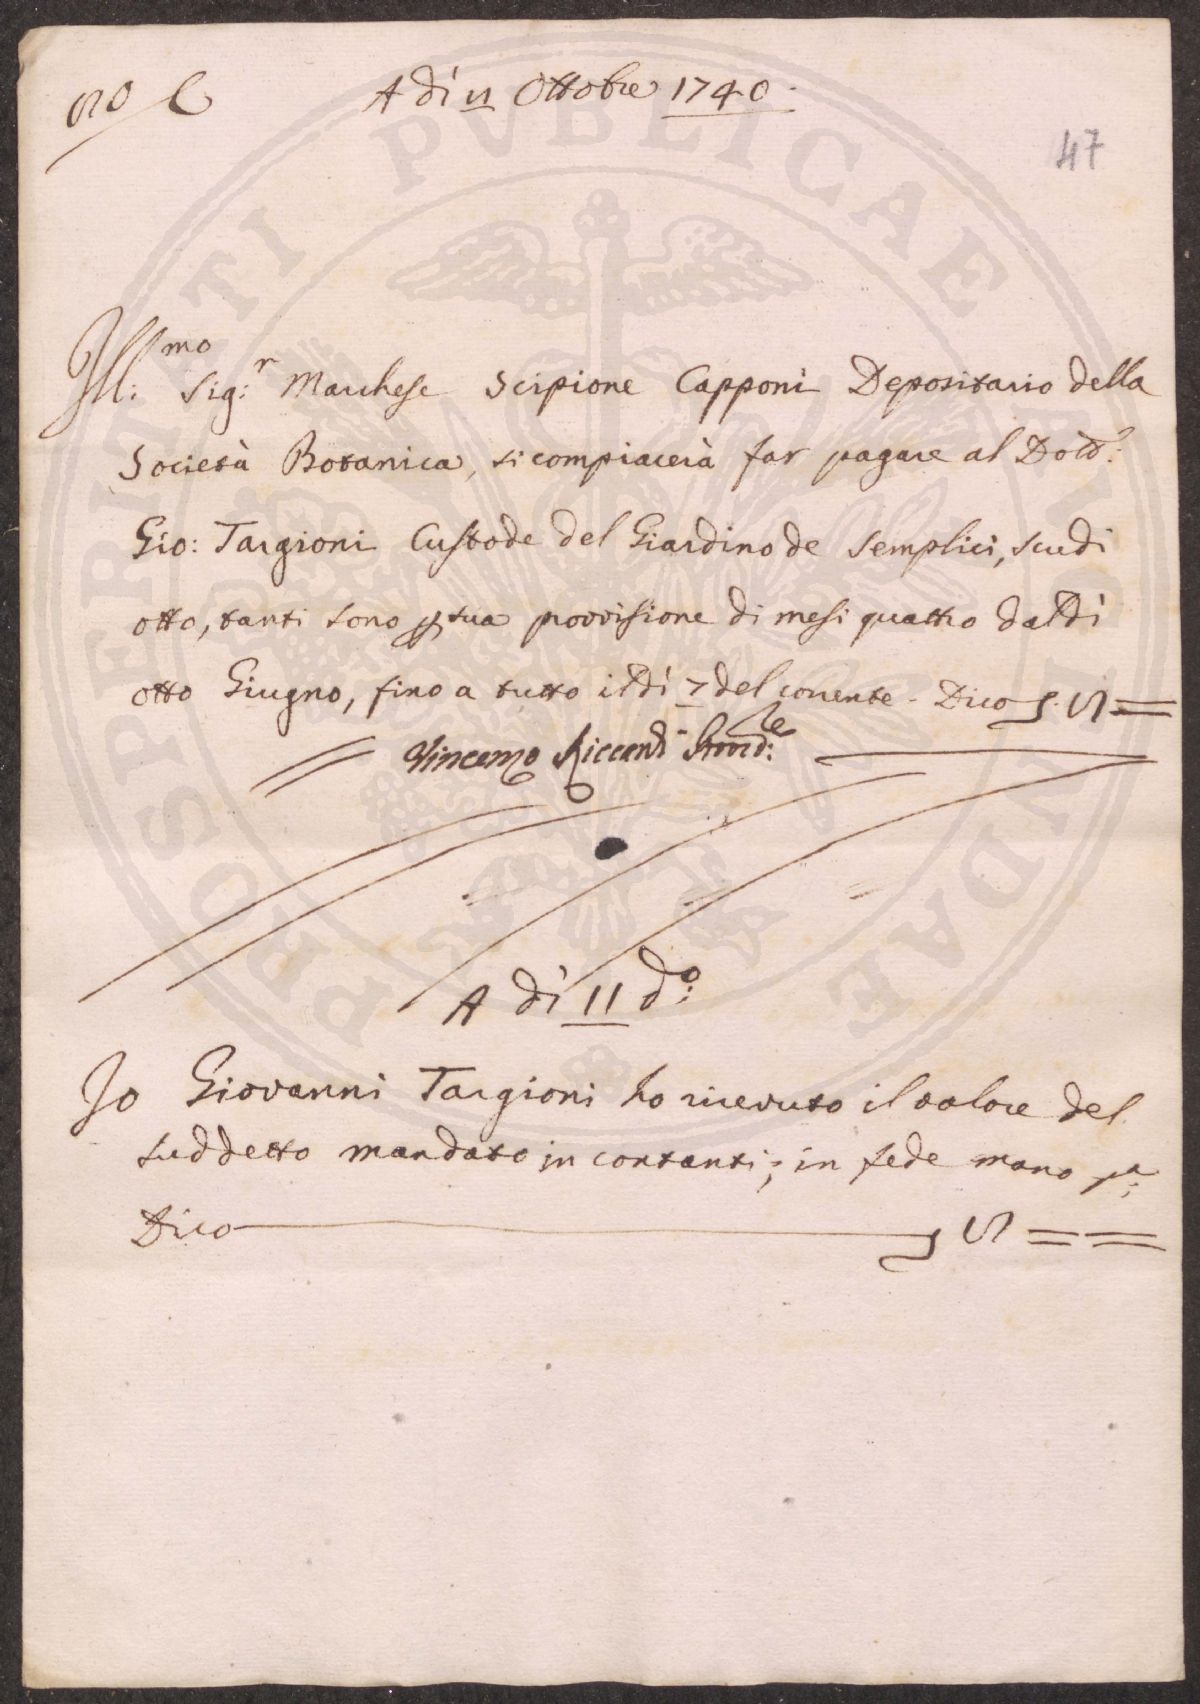 A dì 11 Ottobre 1740.
47
Ill:mo Sig:r Marchese Scipione Capponi Depositario della
Società Botanica, si compiacerà far pagare al Dott:
Gio: Targioni Custode del Giardino de Semplici, scudi
otto, tanti sono p sua provvisione di mesi quattro dal dì
otto Giugno, fino a tutto il dì 7 del corrente - Dico
Vincenzo Riccardi
A dì 11 do:
Io Giovanni Targioni ho ricevuto il valore del
suddetto mandato in contanti; in fede mano pa:
Dico
PROSPERITATI PVBLICAE AVGENDAE